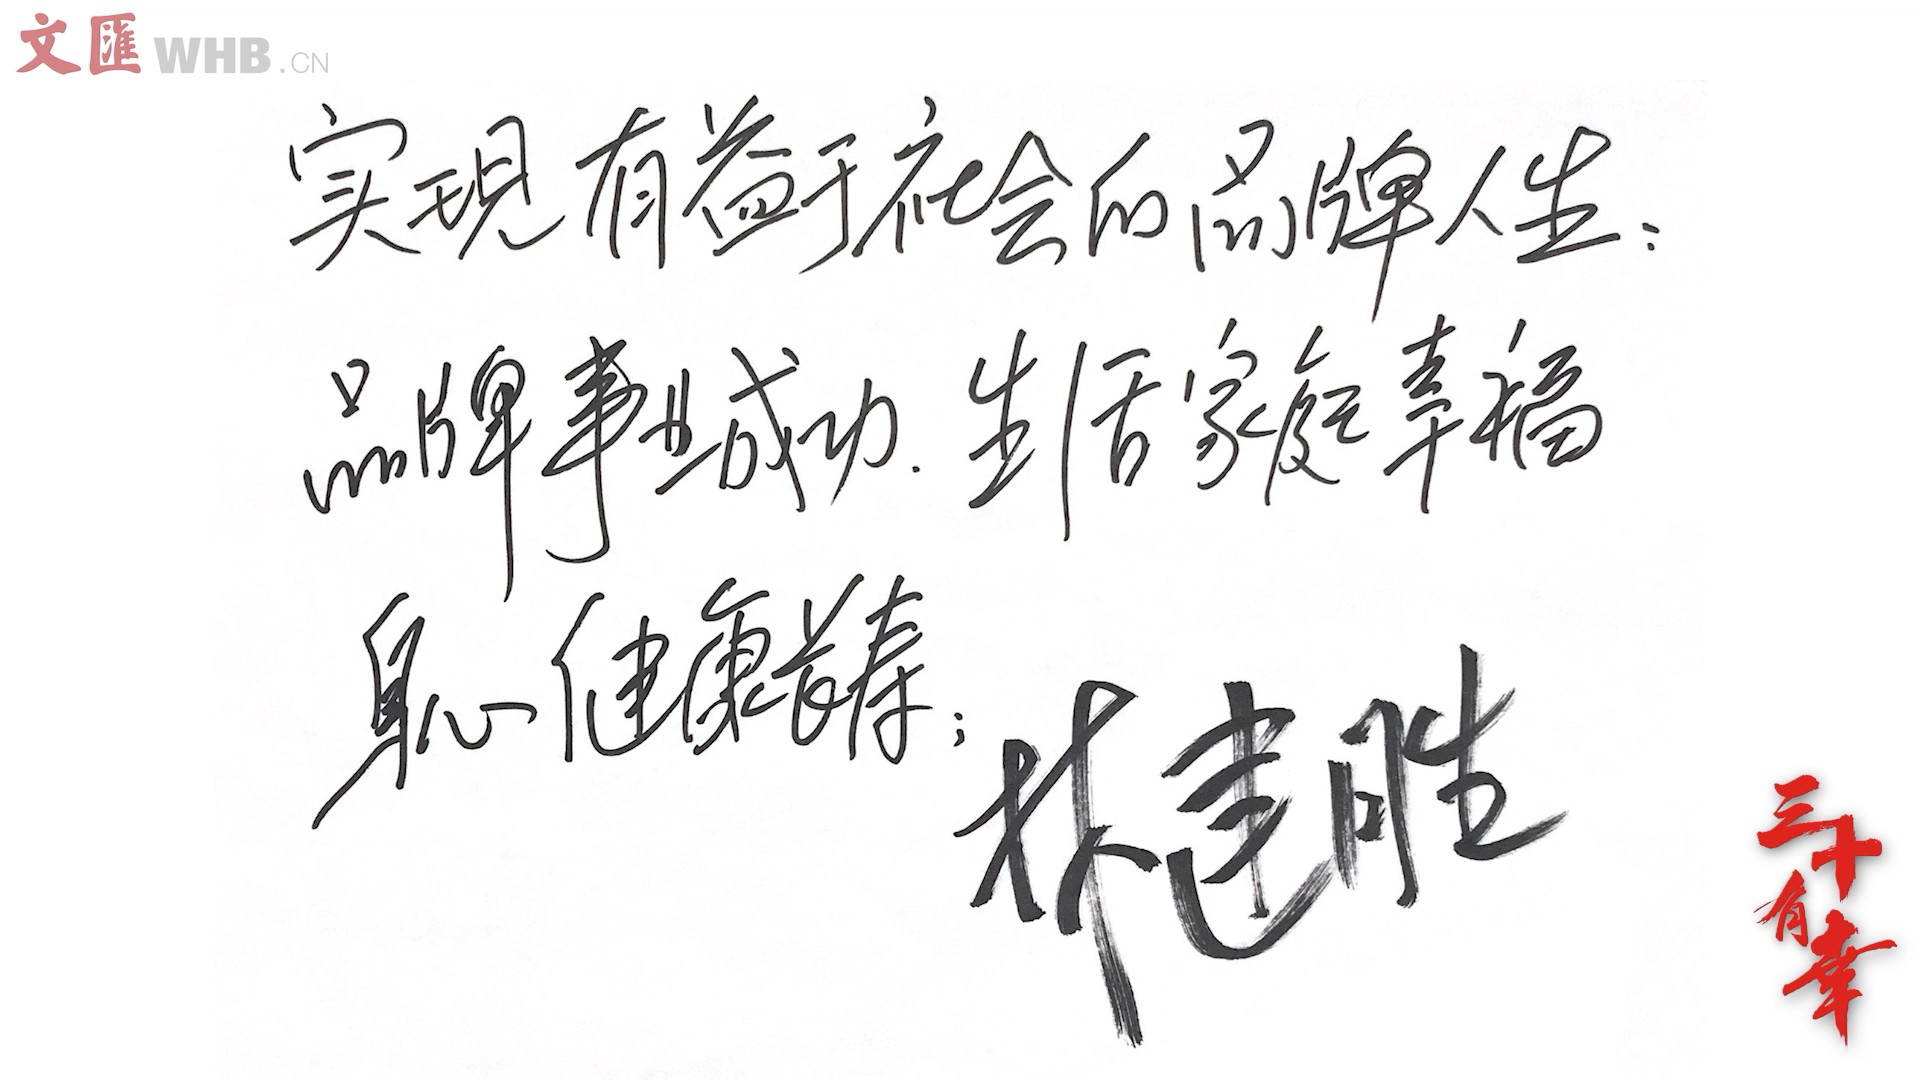 文匯 WHB.CN
实现有益于社会的品牌人生：
品牌事业成功.生活家庭幸福
身心健康长寿；
林建胜
三十
有幸